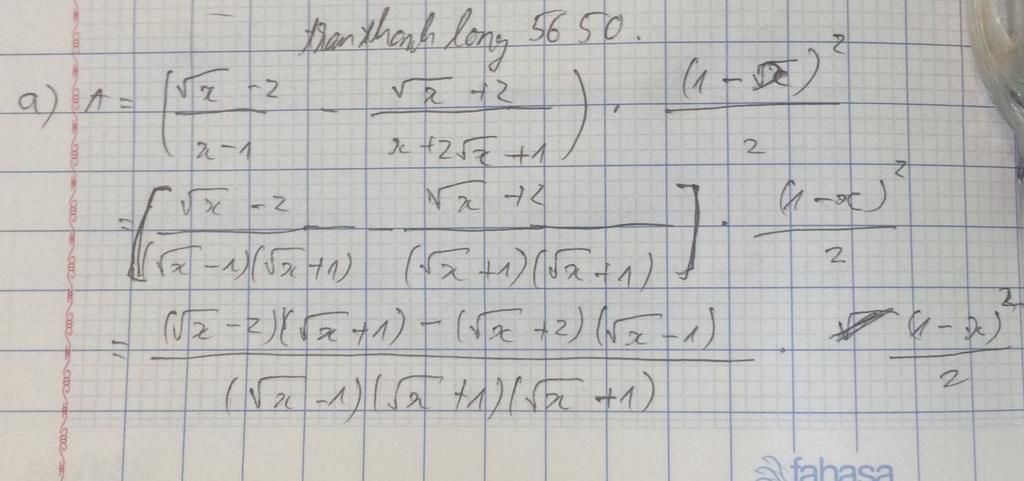 tran thanh long 5650.
a) A = (√x - 2 / x - 1 - √x + 2 / x + 2√x + 1) . (1 - x)² / 2
= [√x - 2 / (√x - 1)(√x + 1) - √x + 2 / (√x + 1)(√x + 1)] . (1 - x)² / 2
= (√x - 2)(√x + 1) - (√x + 2)(√x - 1) / (√x - 1)(√x + 1)(√x + 1) . (1 - x)² / 2
fahasa